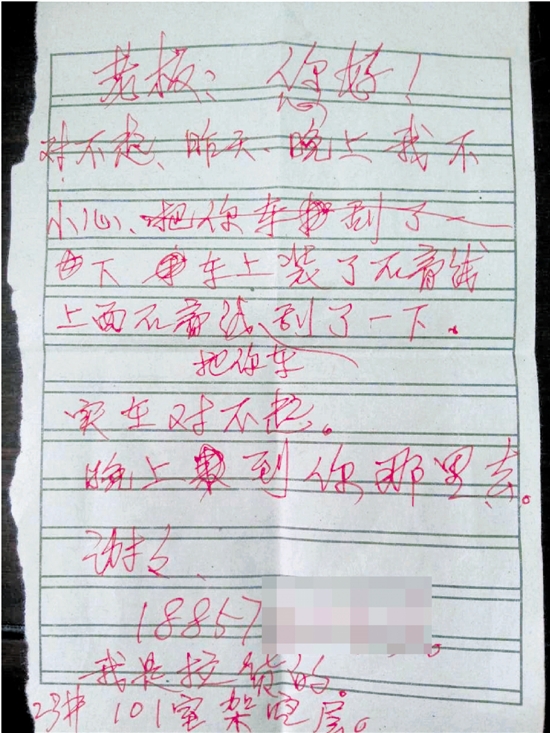 老板:您好!
对不起、昨天、晚上我不
小心、把你车刮了一
下 车上装了石膏线
上面石膏线、刮了一下。
把你车
实在对不起。
晚上到你那里去。
谢谢、
18857
我是拉货的。
23# 101室架空层。